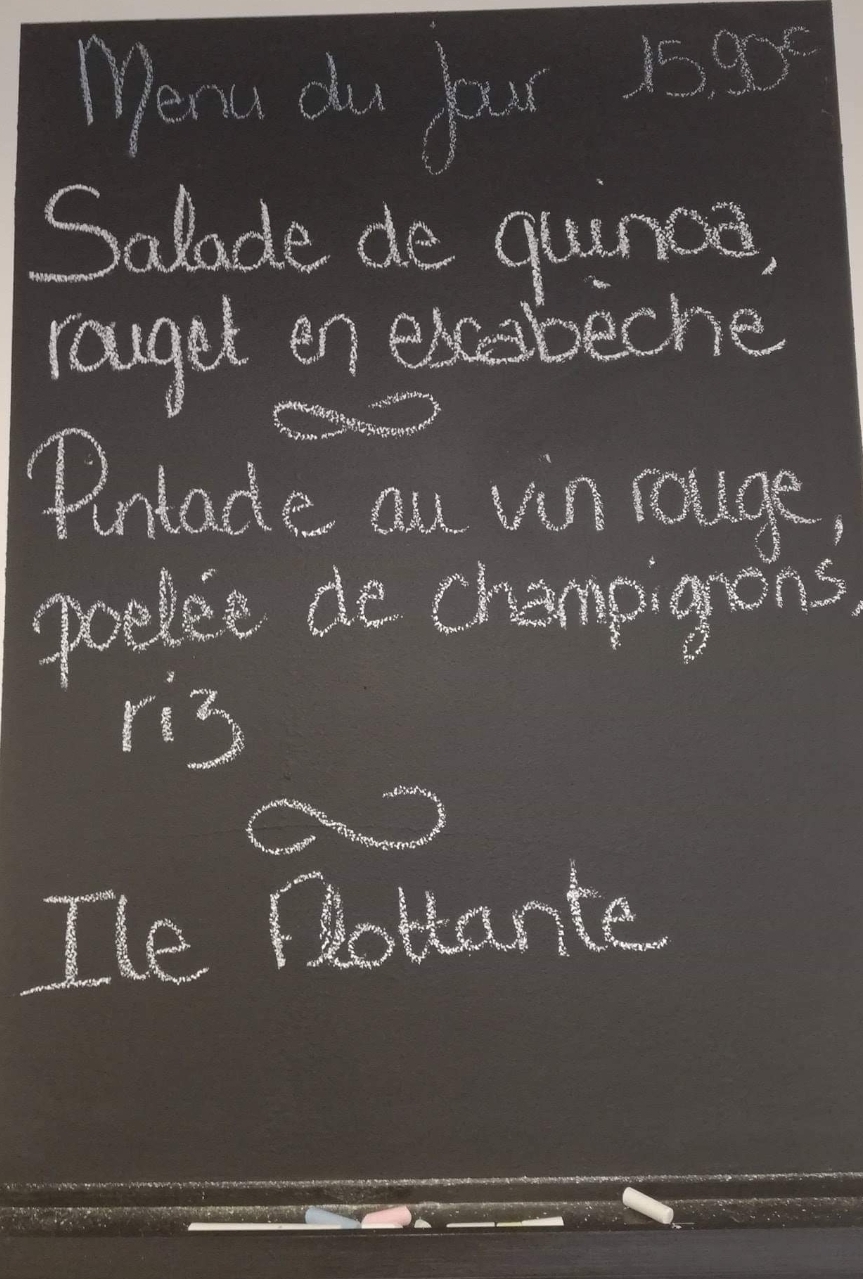 Menu du jour 15,90€
Salade de quinoa,
rouget en escabèche
Pintade au vin rouge,
poelée de champignons,
riz
Ile Flottante